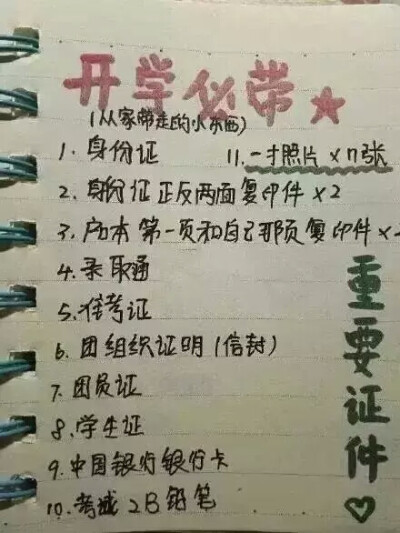 开学必带
(从家带走的小东西)
1. 身份证
11. 一寸照片×n张
2. 身份证正反两面复印件×2
3. 户口本第一页和自己那页复印件×2
4. 录取通
5. 准考证
6. 团组织证明(信封)
7. 团员证
8. 学生证
9. 中国银行银行卡
10. 考试2B铅笔
重要证件